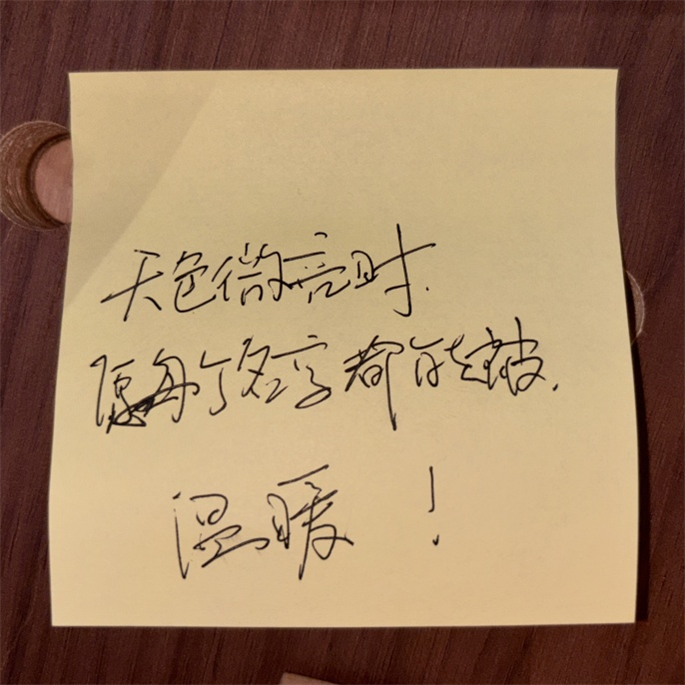 天色微亮时.
愿每个名字都能被.
温暖!